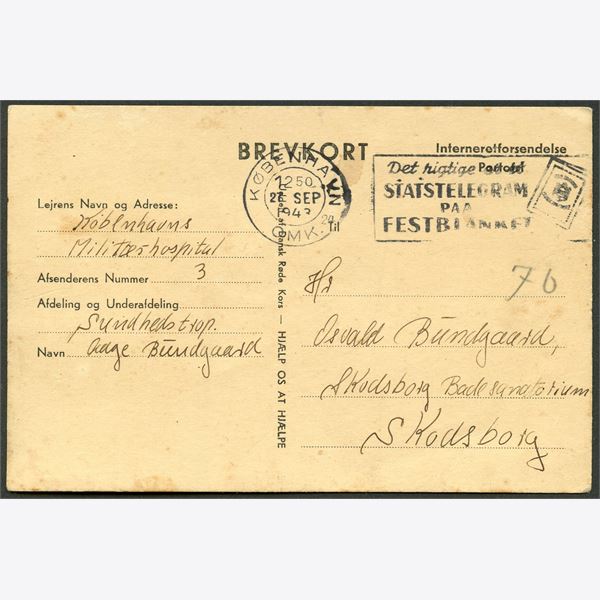 BREVKORT
Interneretforsendelse
KØBENHAVN
1250
SEP
943
OMK.
Det rigtige
Portofri
STATSTELEGRAM
PAA
FESTBLANKET
Til
Lejrens Navn og Adresse:
Københavns
Militærhospital
Afsenderens Nummer 3
Afdeling og Underafdeling
Sundhedstrop.
Navn Aage Bundgaard
af Dansk Røde Kors — HJÆLP OS AT HJÆLPE
76
Hr
Osvald Bundgaard,
Skodsborg Badesanatorium
Skodsborg